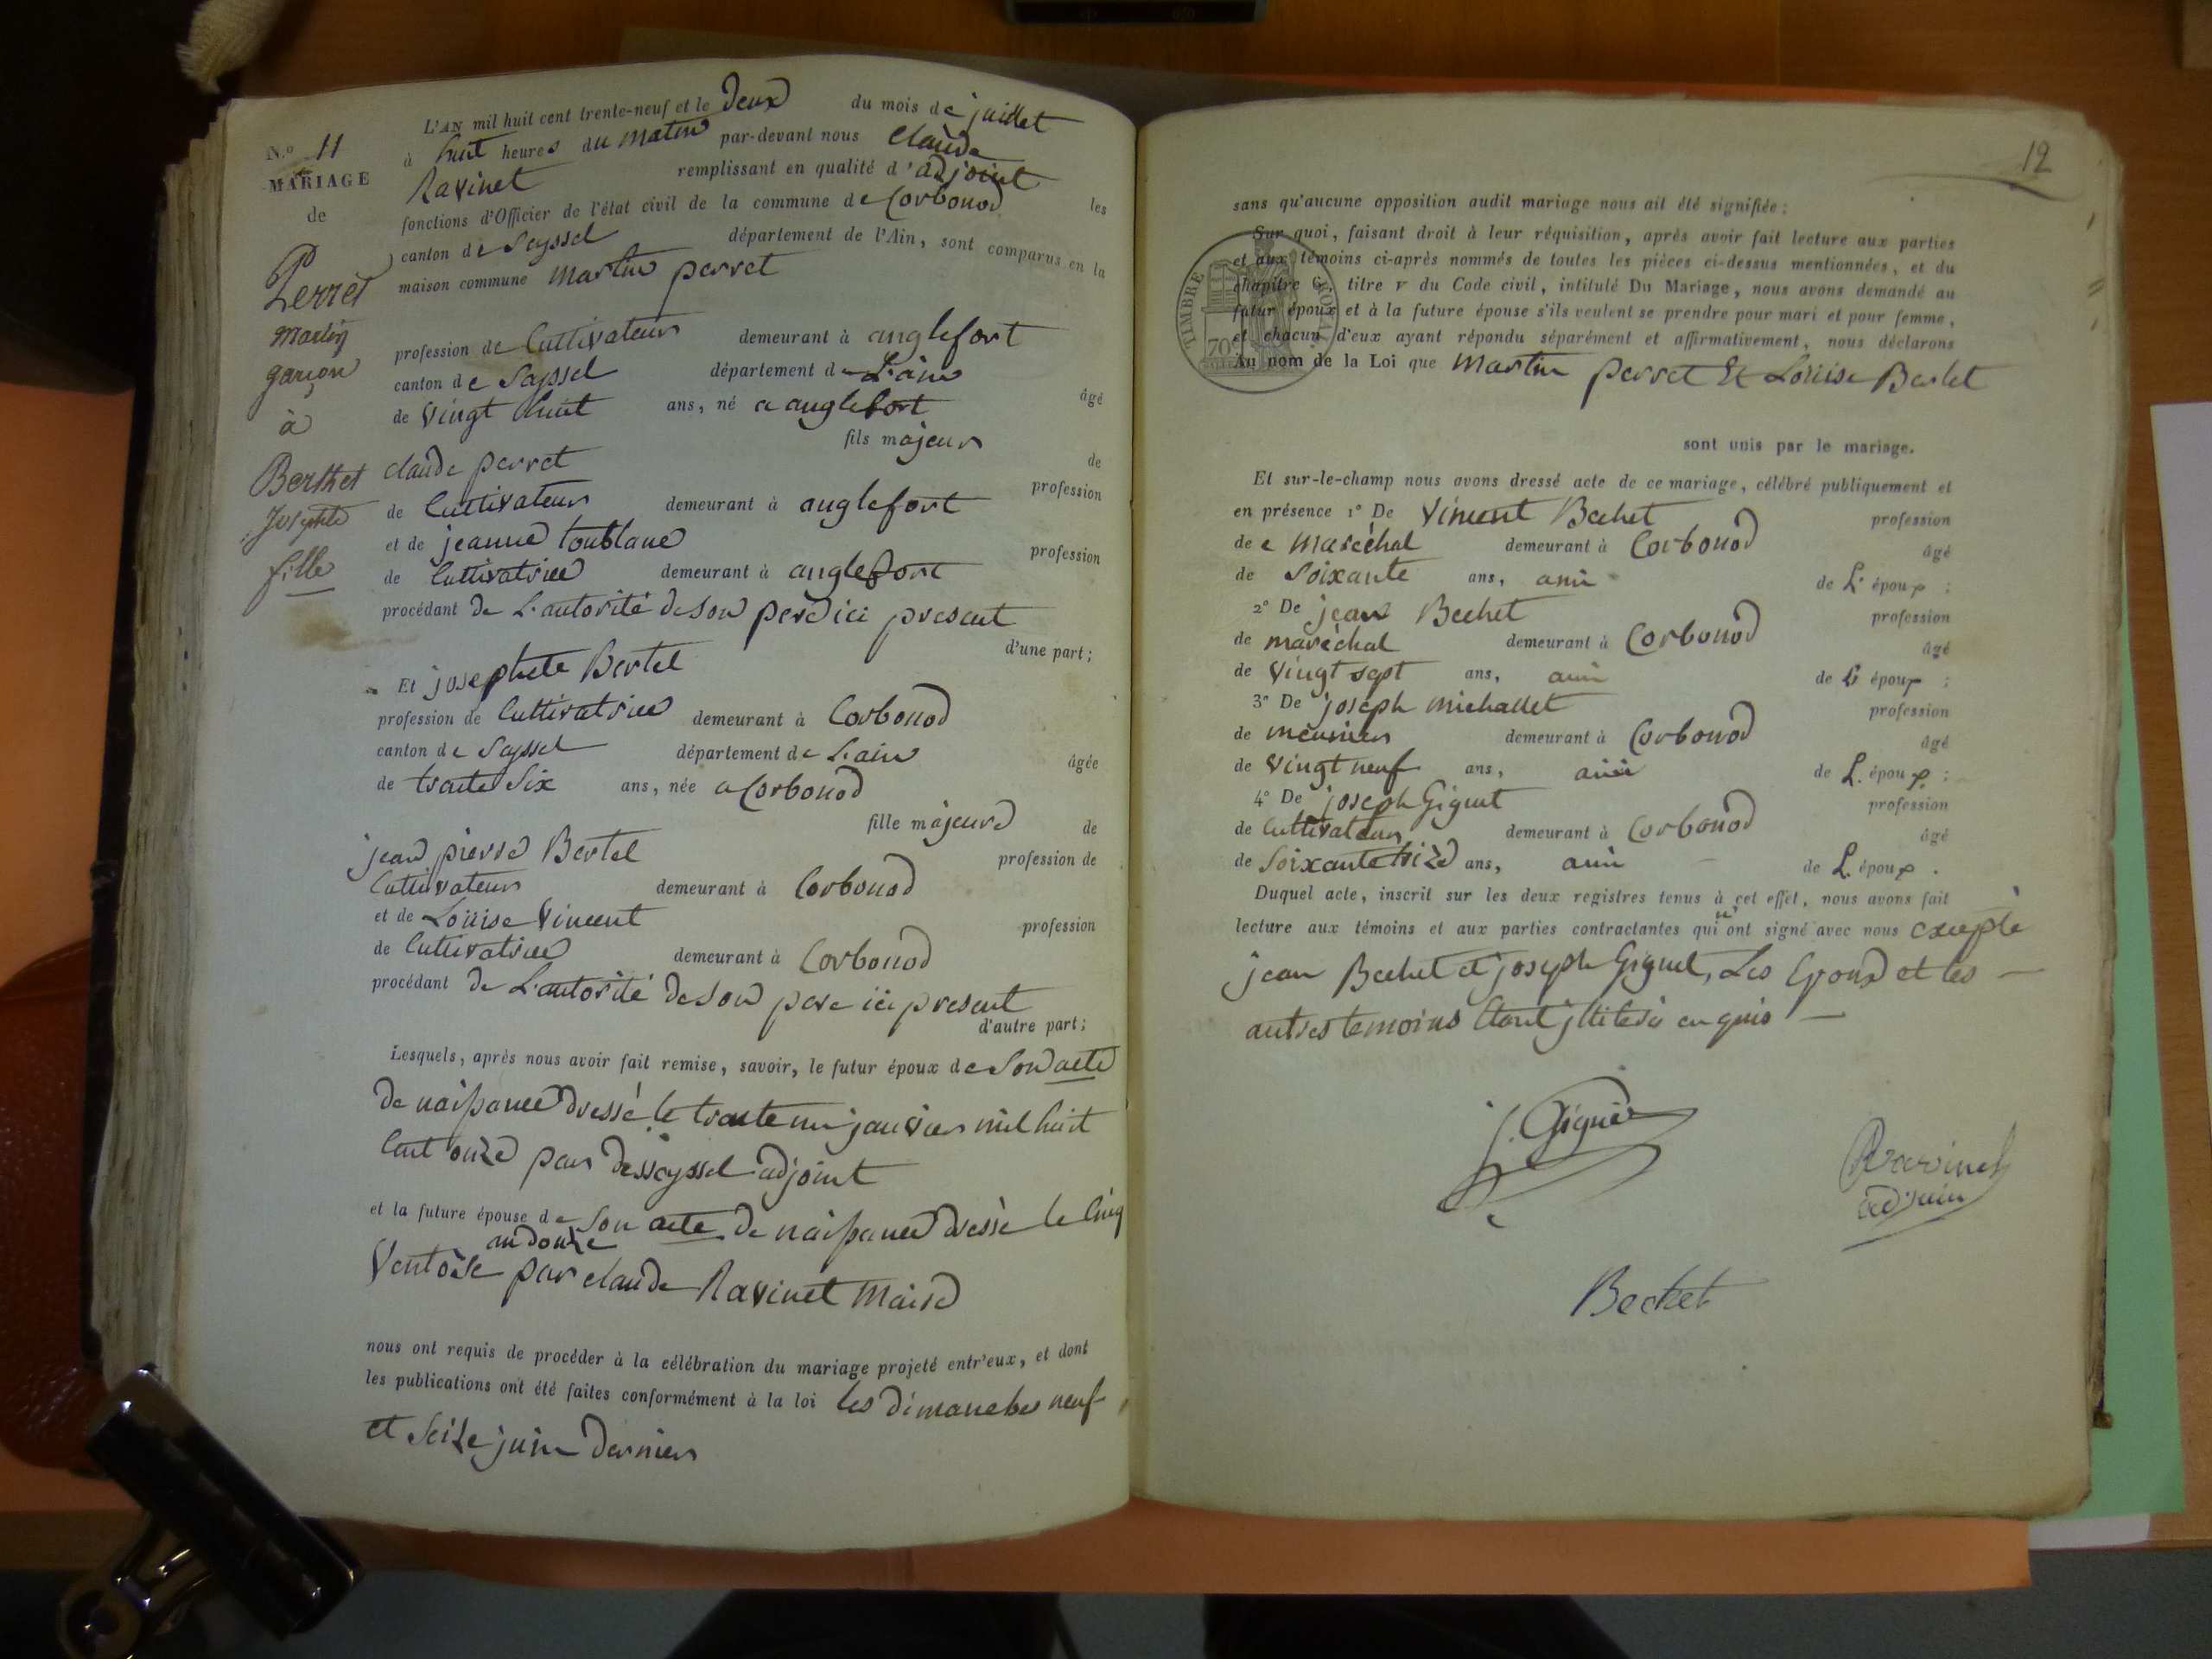 N.° 11
MARIAGE
de
Perret
Martin
garçon
à
Berthet
Josephte
fille
L'AN mil huit cent trente-neuf et le deux du mois de juillet
à huit heures du matin par-devant nous claude
Ravinet remplissant en qualité d'adjoint les
fonctions d'Officier de l'état civil de la commune de Corbonod
canton de Seyssel département de l'Ain, sont comparus en la
maison commune Martin perret
profession de Cultivateur demeurant à anglefort
canton de Seyssel département de L'ain âgé
de Vingt huit ans, né a anglefort
fils majeur de
claude perret profession
de Cultivateur demeurant à anglefort
et de jeanne toublanc profession
de Cultivatrice demeurant à anglefort
procédant de L'autorité de son pere ici present
d'une part;
Et josephete Bertel
profession de Cultivatrice demeurant à Corbonod
canton de Seyssel département de L'ain âgée
de trante Six ans, née a Corbonod
fille majeure de
jean pierre Bertel profession de
Cultivateur demeurant à Corbonod
et de Louise Vincent profession
de Cultivatrice demeurant à Corbonod
procédant de L'autorité de son pere ici present
d'autre part;
Lesquels, après nous avoir fait remise, savoir, le futur époux de Son acte
de naissance dressé le trante un janvier mil huit
Cent onze par desseyssel adjoint
et la future épouse de Son acte de naissance dressè le Cinq
an douze
Ventôse par claude Ravinet Maire
nous ont requis de procéder à la célébration du mariage projeté entr'eux, et dont
les publications ont été faites conformément à la loi les dimanches neuf
et Seize juin dernier
12
sans qu'aucune opposition audit mariage nous ait été signifiée:
Sur quoi, faisant droit à leur réquisition, après avoir fait lecture aux parties
et aux témoins ci-après nommés de toutes les pièces ci-dessus mentionnées, et du
chapitre 6, titre v du Code civil, intitulé Du Mariage, nous avons demandé au
futur époux et à la future épouse s'ils veulent se prendre pour mari et pour femme,
et chacun d'eux ayant répondu séparément et affirmativement, nous déclarons
Au nom de la Loi que Martin perret Et Louise Bertet
TIMBRE ROYAL
70
sont unis par le mariage.
Et sur-le-champ nous avons dressé acte de ce mariage, célébré publiquement et
en présence 1° De Vincent Bechet profession
de Maréchal demeurant à Corbonod âgé
de Soixante ans, ami de L'époux;
2° De jean Bechet profession
de maréchal demeurant à Corbonod âgé
de Vingt sept ans, ami de L'époux;
3° De joseph michallet profession
de meunier demeurant à Corbonod âgé
de Vingt neuf ans, ami de L'époux;
4° De joseph Giguet profession
de Cultivateur demeurant à Corbonod âgé
de Soixante treize ans, ami de L'époux.
Duquel acte, inscrit sur les deux registres tenus à cet effet, nous avons fait
lecture aux témoins et aux parties contractantes qui n'ont signé avec nous excepté
jean Bechet et joseph Giguet, Les Epoux et les
autres temoins Etant jllitérés enquis
J. Giguet
Ravinet
adjoin
Bechet